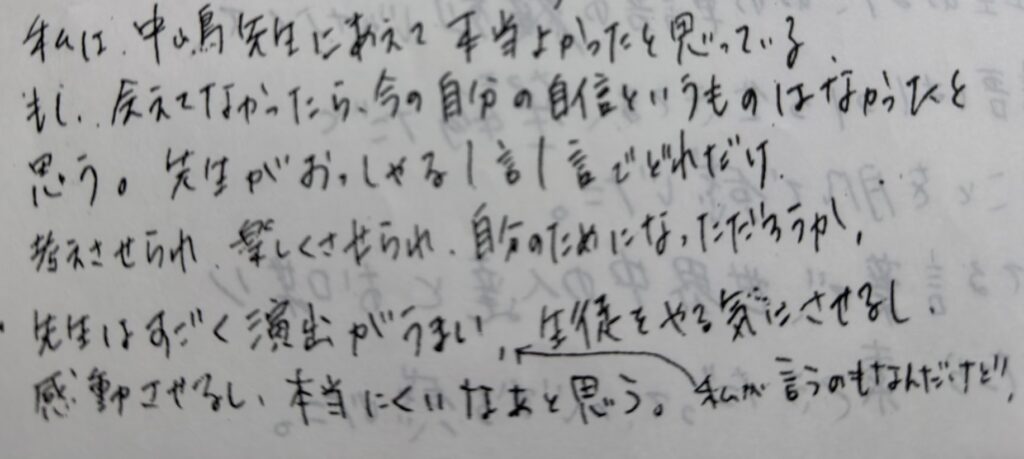 私は、中嶋先生にあえて本当よかったと思っている。
もし、会えてなかったら、今の自分の自信というものはなかったと
思う。先生がおっしゃる1言1言でどれだけ
考えさせられ、楽しくさせられ、自分のためになっただろうか。
先生はすごく演出がうまい、生徒をやる気にさせるし、
感動させるし、本当ににくいなぁと思う。私が言うのもなんだけど!